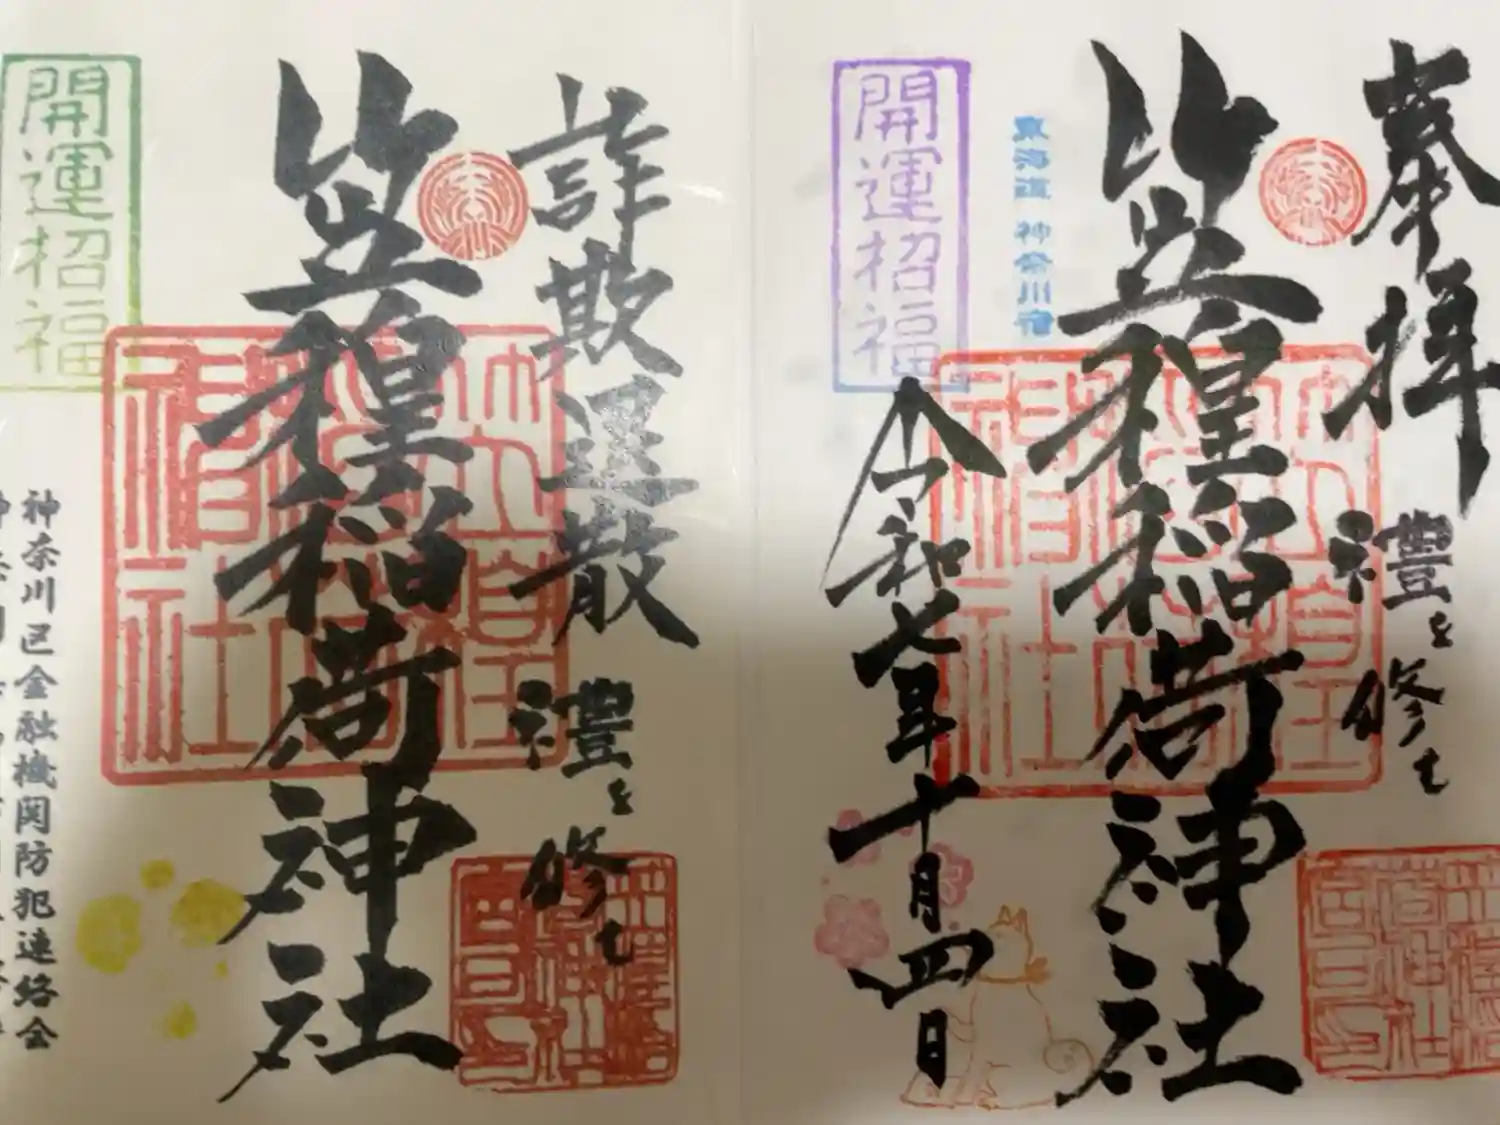 奉拝
禮を修む
笠䅣稲荷神社
東海道 神奈川宿
開運招福
令和七年十月四日
詐欺退散
禮を修む
笠䅣稲荷神社
開運招福
神奈川区金融機関防犯連絡会